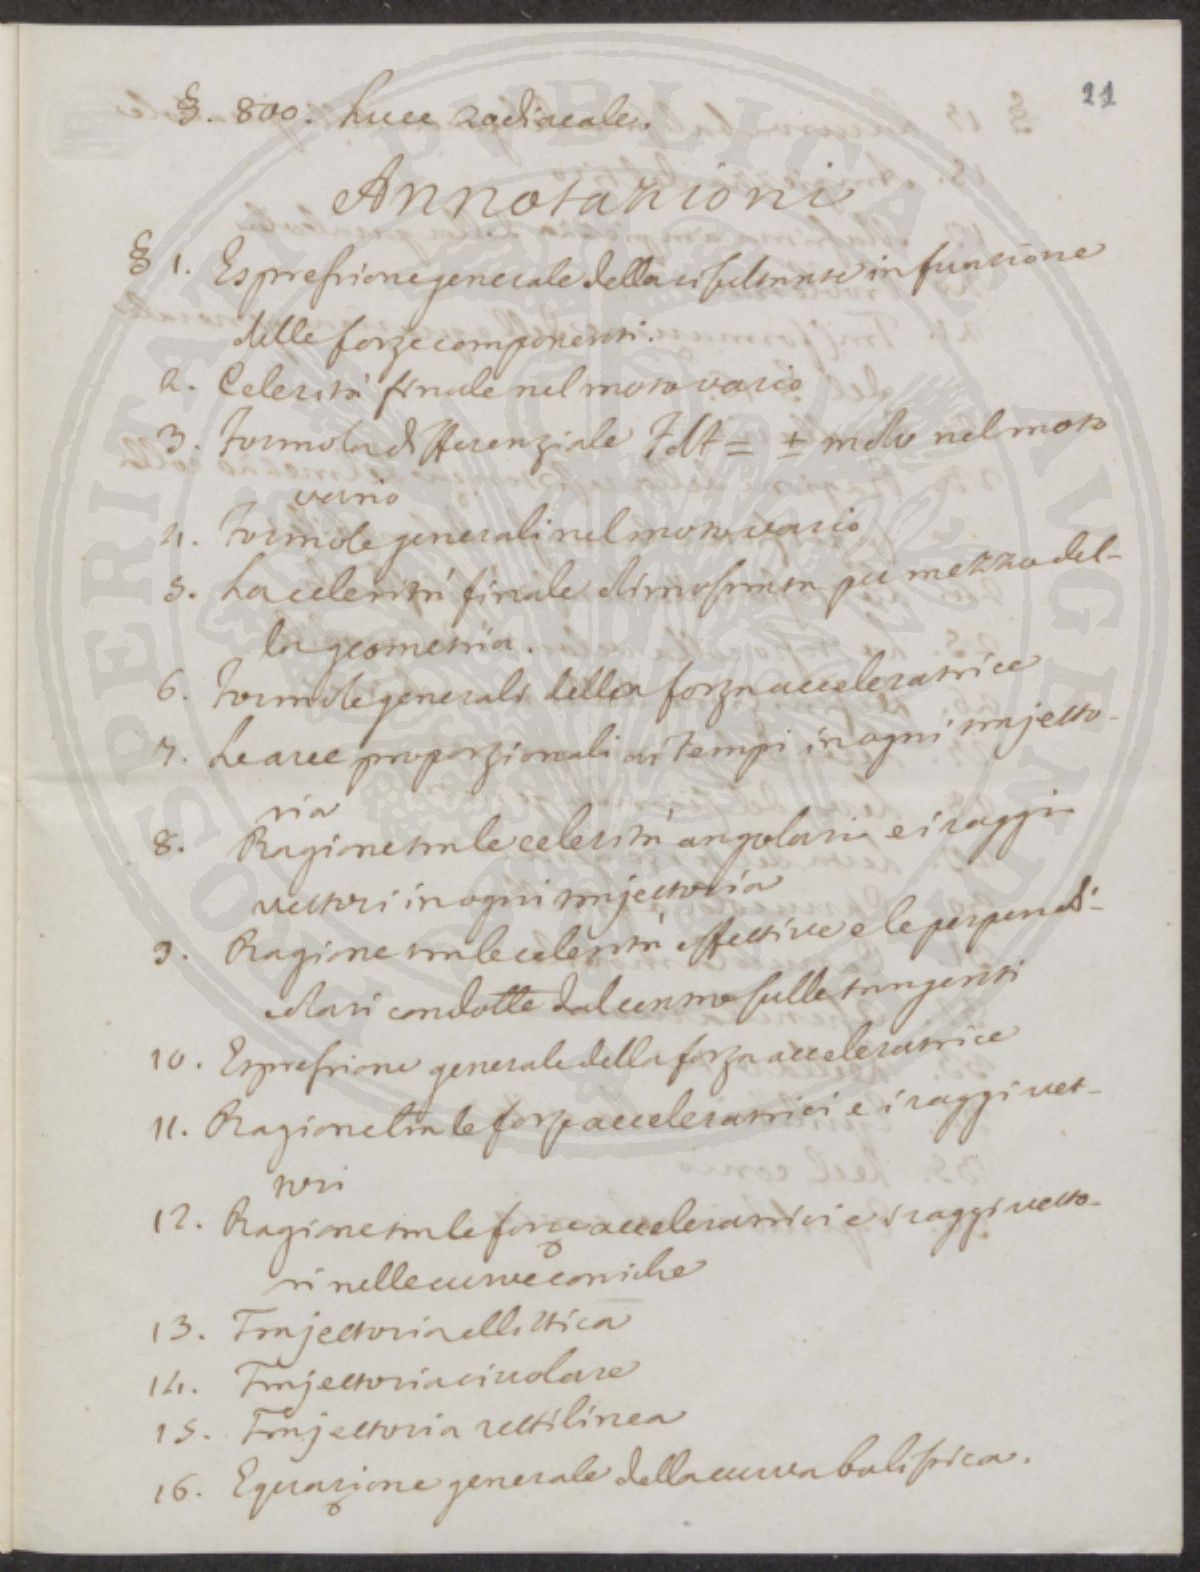 21
§. 800. Luce zodiacale.
Annotazioni
§ 1. Espressione generale della risultante in funzione
delle forze componenti.
2. Celerità finale nel moto vario
3. Formola differenziale Fdt = ± mdv nel moto
vario
4. Formole generali nel moto vario
5. La celerità finale dimostrata per mezzo del-
la geometria.
6. Formole generali della forza acceleratrice
7. Le aree proporzionali ai tempi in ogni trajetto-
ria
8. Ragione tra le celerità angolari e i raggi
vettori in ogni trajettoria
9. Ragione tra le celerità effettive e le perpendi-
colari condotte dal centro sulle tangenti
10. Espressione generale della forza acceleratrice
11. Ragione tra le forze acceleratrici e i raggi vet-
tori
12. Ragione tra le forze acceleratrici e i raggi vetto-
ri nelle curve coniche
13. Trajettoria ellittica
14. Trajettoria circolare
15. Trajettoria rettilinea
16. Equazione generale della curva balistica.